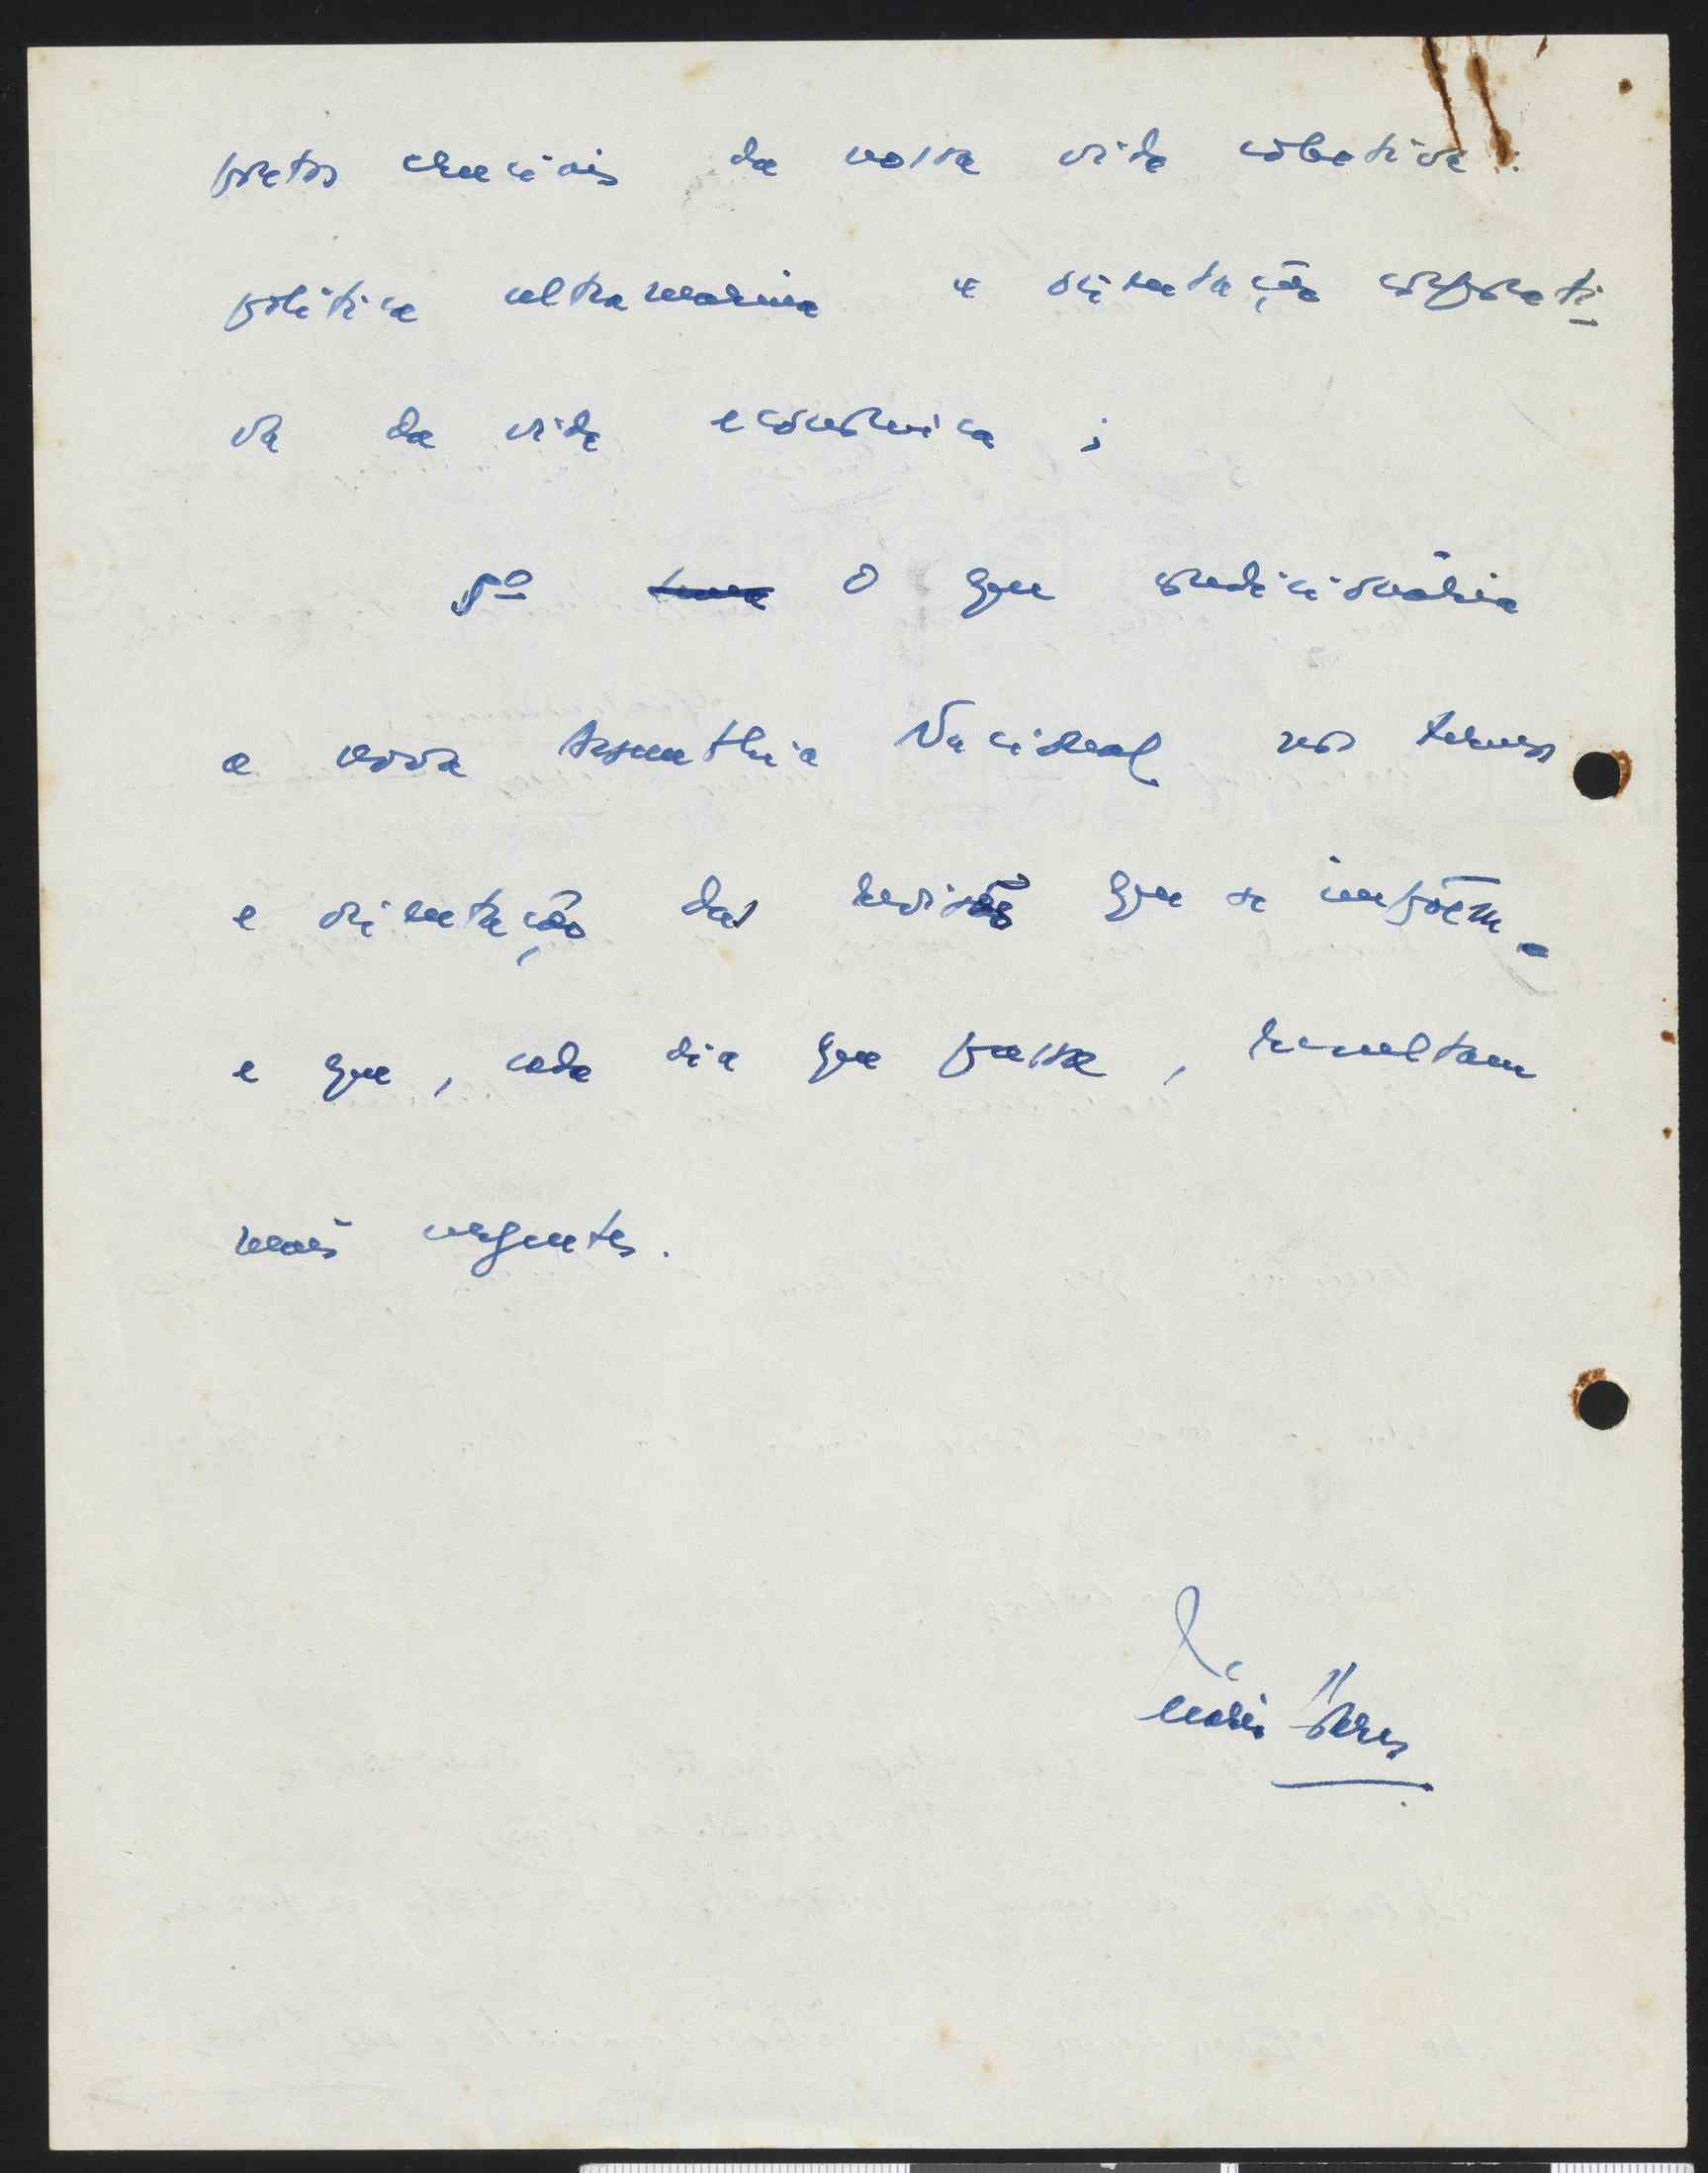 pectos cruciais da nossa vida colectiva:
política ultramarina e orientação corporati
va da vida económica;
5º O que condicionaria
a nova Assembleia Nacional nos termos
e orientação das revisões que se impõem
e que, cada dia que passa, resultam
mais urgentes.
Mário Soares